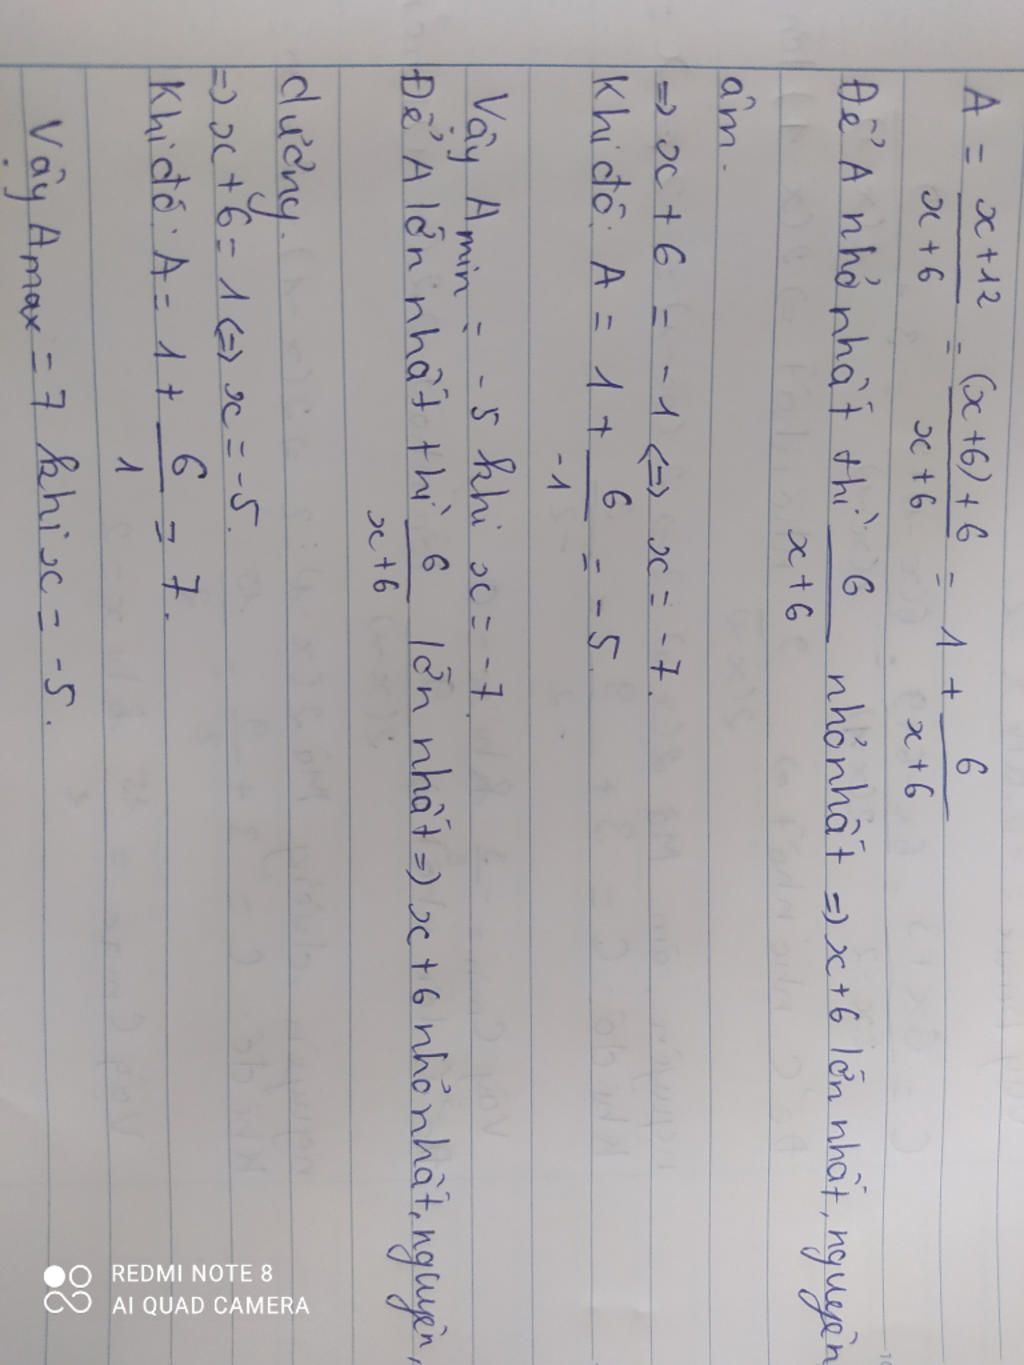 A = x+12/x+6 = (x+6)+6/x+6 = 1 + 6/x+6
Để A nhỏ nhất thì 6/x+6 nhỏ nhất => x+6 lớn nhất, nguyên
âm.
=> x+6 = -1 <=> x = -7.
Khi đó: A = 1 + 6/-1 = -5.
Vậy Amin = -5 khi x = -7.
Để A lớn nhất thì 6/x+6 lớn nhất => x+6 nhỏ nhất, nguyên,
dương.
=> x+6 = 1 <=> x = -5.
Khi đó: A = 1 + 6/1 = 7.
Vậy Amax = 7 khi x = -5.
REDMI NOTE 8
AI QUAD CAMERA